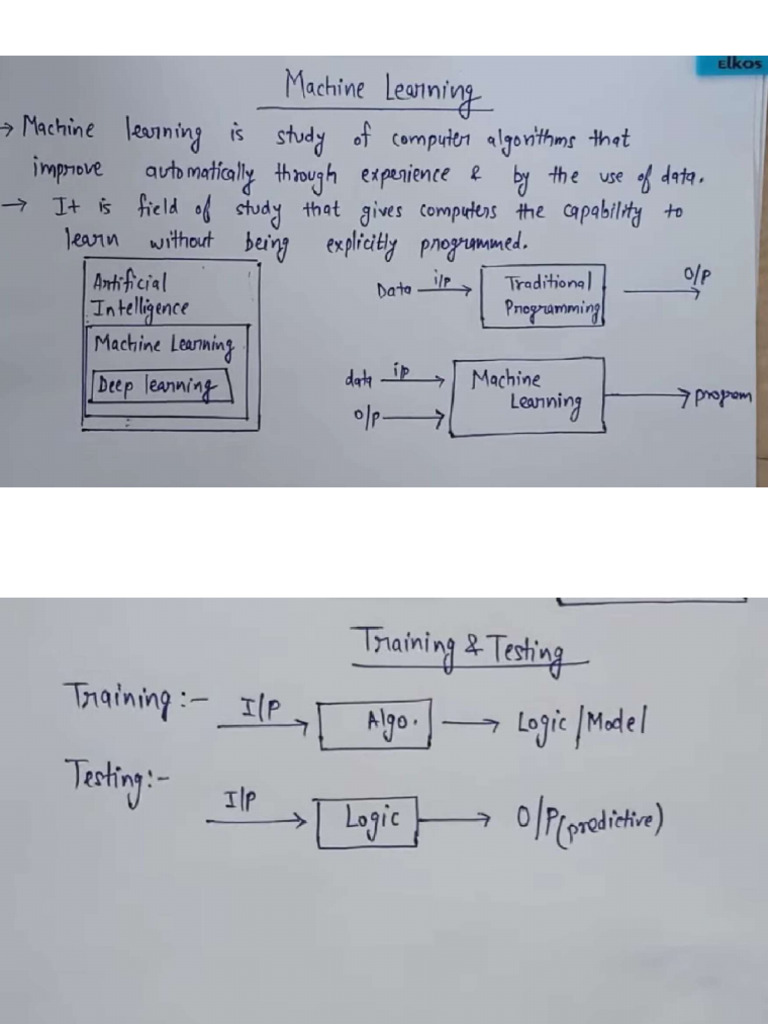 Elkos
Machine Learning
→ Machine learning is study of computer algorithms that
improve automatically through experience & by the use of data.
→ It is field of study that gives computers the capability to
learn without being explicitly programmed.
Artificial
Intelligence
Machine Learning
Deep learning
Data i/p → Traditional
Programming → O/P
data i/p → Machine
O/p → Learning → program
Training & Testing
Training :- I/P → Algo. → Logic/Model
Testing :- I/P → Logic → O/P (predictive)